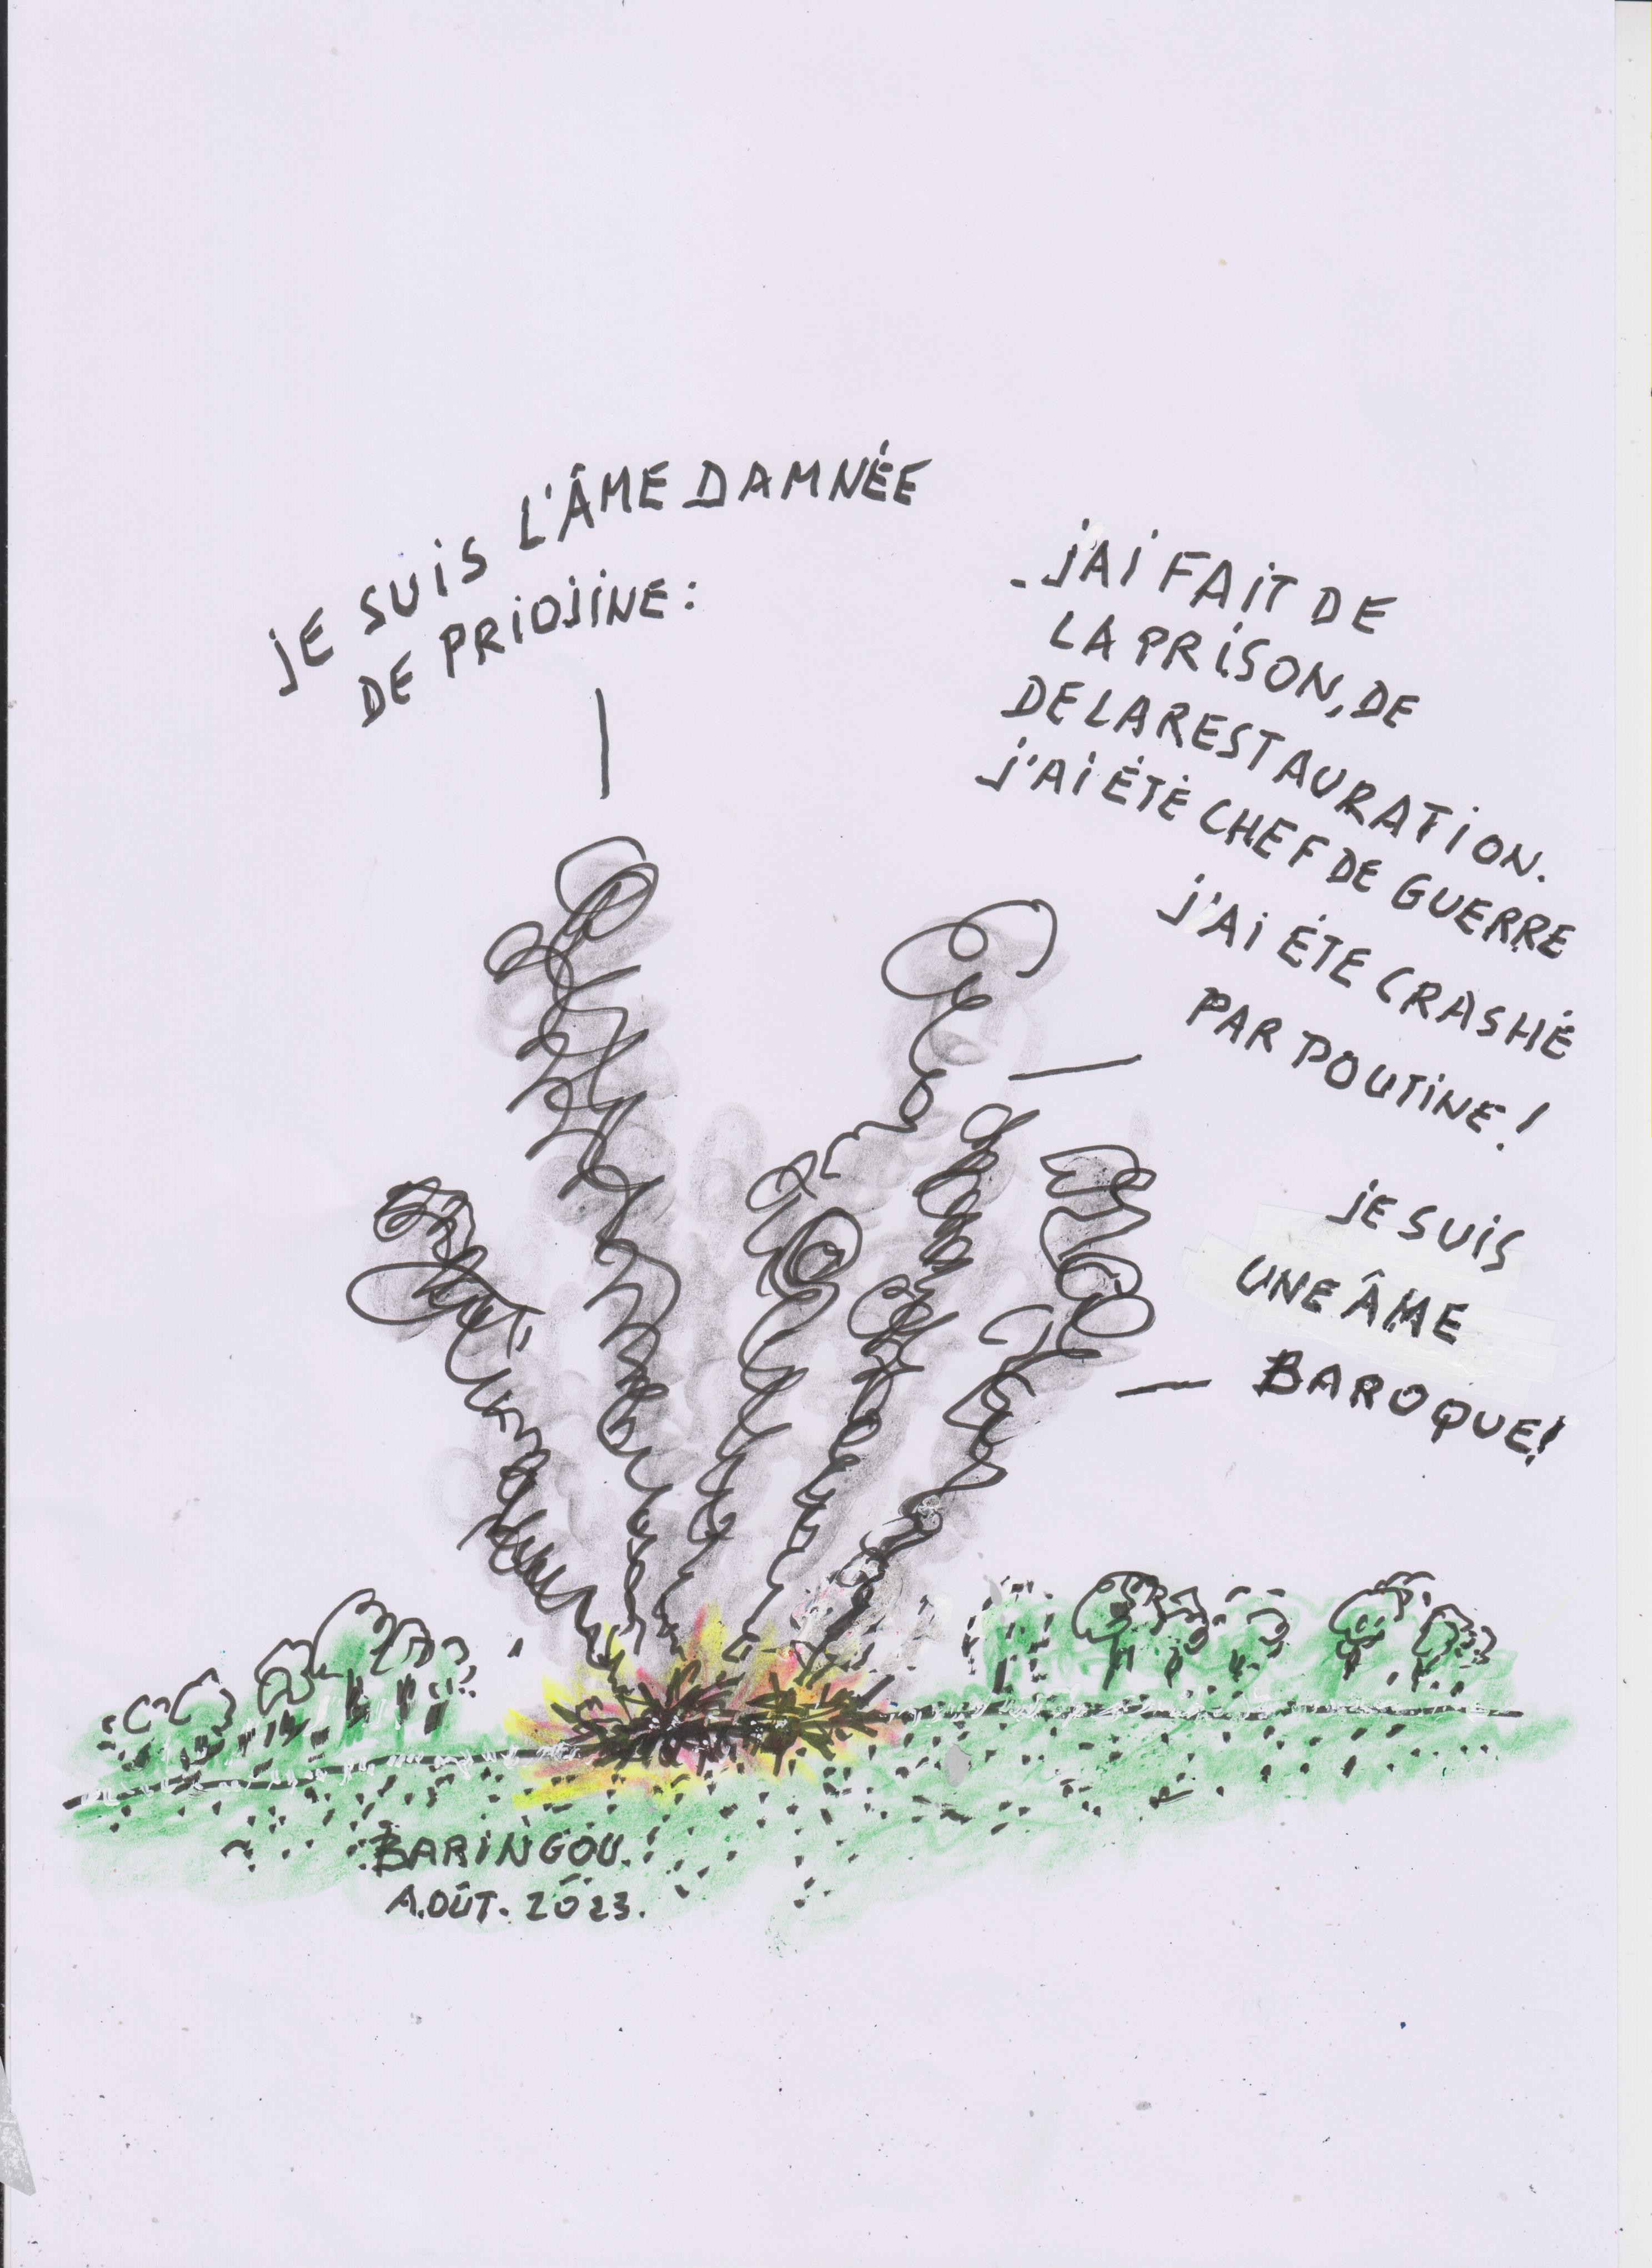 JE SUIS L'ÂME DAMNÉE
DE PRIOJINE :
- J'AI FAIT DE
LA PRISON, DE
DE LA RESTAURATION.
J'AI ÉTÉ CHEF DE GUERRE
J'AI ÉTÉ CRASHÉ
PAR POUTINE !
JE SUIS
UNE ÂME
BAROQUE !
BARINGOU.
AOÛT. 2023.